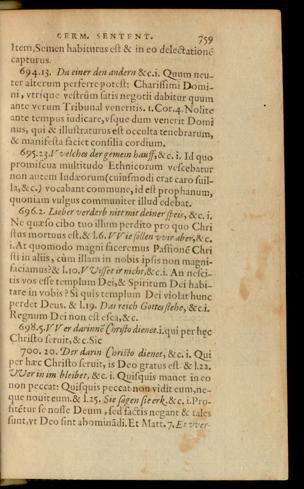 GERM. SENTENT. 759
Item, Semen habiturus est & in eo delectationē
capturus.
694.13. Da einer den andern &c. i. Quum neu-
ter alterum perferre potest: Charissimi Domi-
ni, vtrisque vestrûm satis negotii dabitur quum
ante verum Tribunal veneritis. 1. Cor. 4. Nolite
ante tempus iudicare, vsque dum venerit Domi
nus, qui & illustraturus est occulta tenebrarum,
& manifesta faciet consilia cordium.
695.23. Welches der gemein hauff, &c. i. Id quo
promiscua multitudo Ethnicorum vescebatur
non autem Iudæorum (cuiusmodi erat caro suil-
la, &c.) vocabant commune, id est prophanum,
quoniam vulgus communiter illud edebat.
696.2. Lieber verderb nitt mit deiner speis, &c. i.
Ne quæso cibo tuo illum perdito pro quo Chri
stus mortuus est. & l.6. Wie sollen wir aber, &c.
i. At quomodo magni faceremus Passionē Chri
sti in aliis, cùm illam in nobis ipsis non magni-
faciamus? & l.10. Wisset ir nicht, &c. i. An nesci-
tis vos esse templum Dei, & Spiritum Dei habi-
tare in vobis? Si quis templum Dei violat hunc
perdet Deus. & l.19. Das reich Gottes stehe, &c. i.
Regnum Dei non est esca, &c.
698.5. Wer darinnē Christo dienet. i. qui per hęc
Christo seruit, &c. Sic
700. 20. Der darin Christo dienet, &c. i. Qui
per hæc Christo seruit, is Deo gratus est. & l.22.
Wer in im bleibet, &c. i. Quisquis manet in eo
non peccat: Quisquis peccat non vidit eum, ne-
que nouit eum. & l.25. Sie sagen sie erk. &c. i. Pro-
fitētur se nosse Deum, sed factis negant & tales
sunt, vt Deo sint abominādi. Et Matt. 7. Es wer-